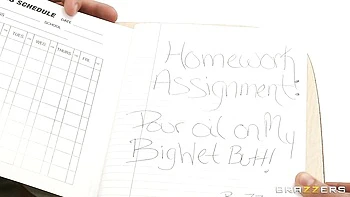 SCHEDULE
DATE
SCHOOL
TUES
WED
THURS
FRI
Homework
Assignment:
Pour oil on My
Big Wet Butt!
BRAZZERS